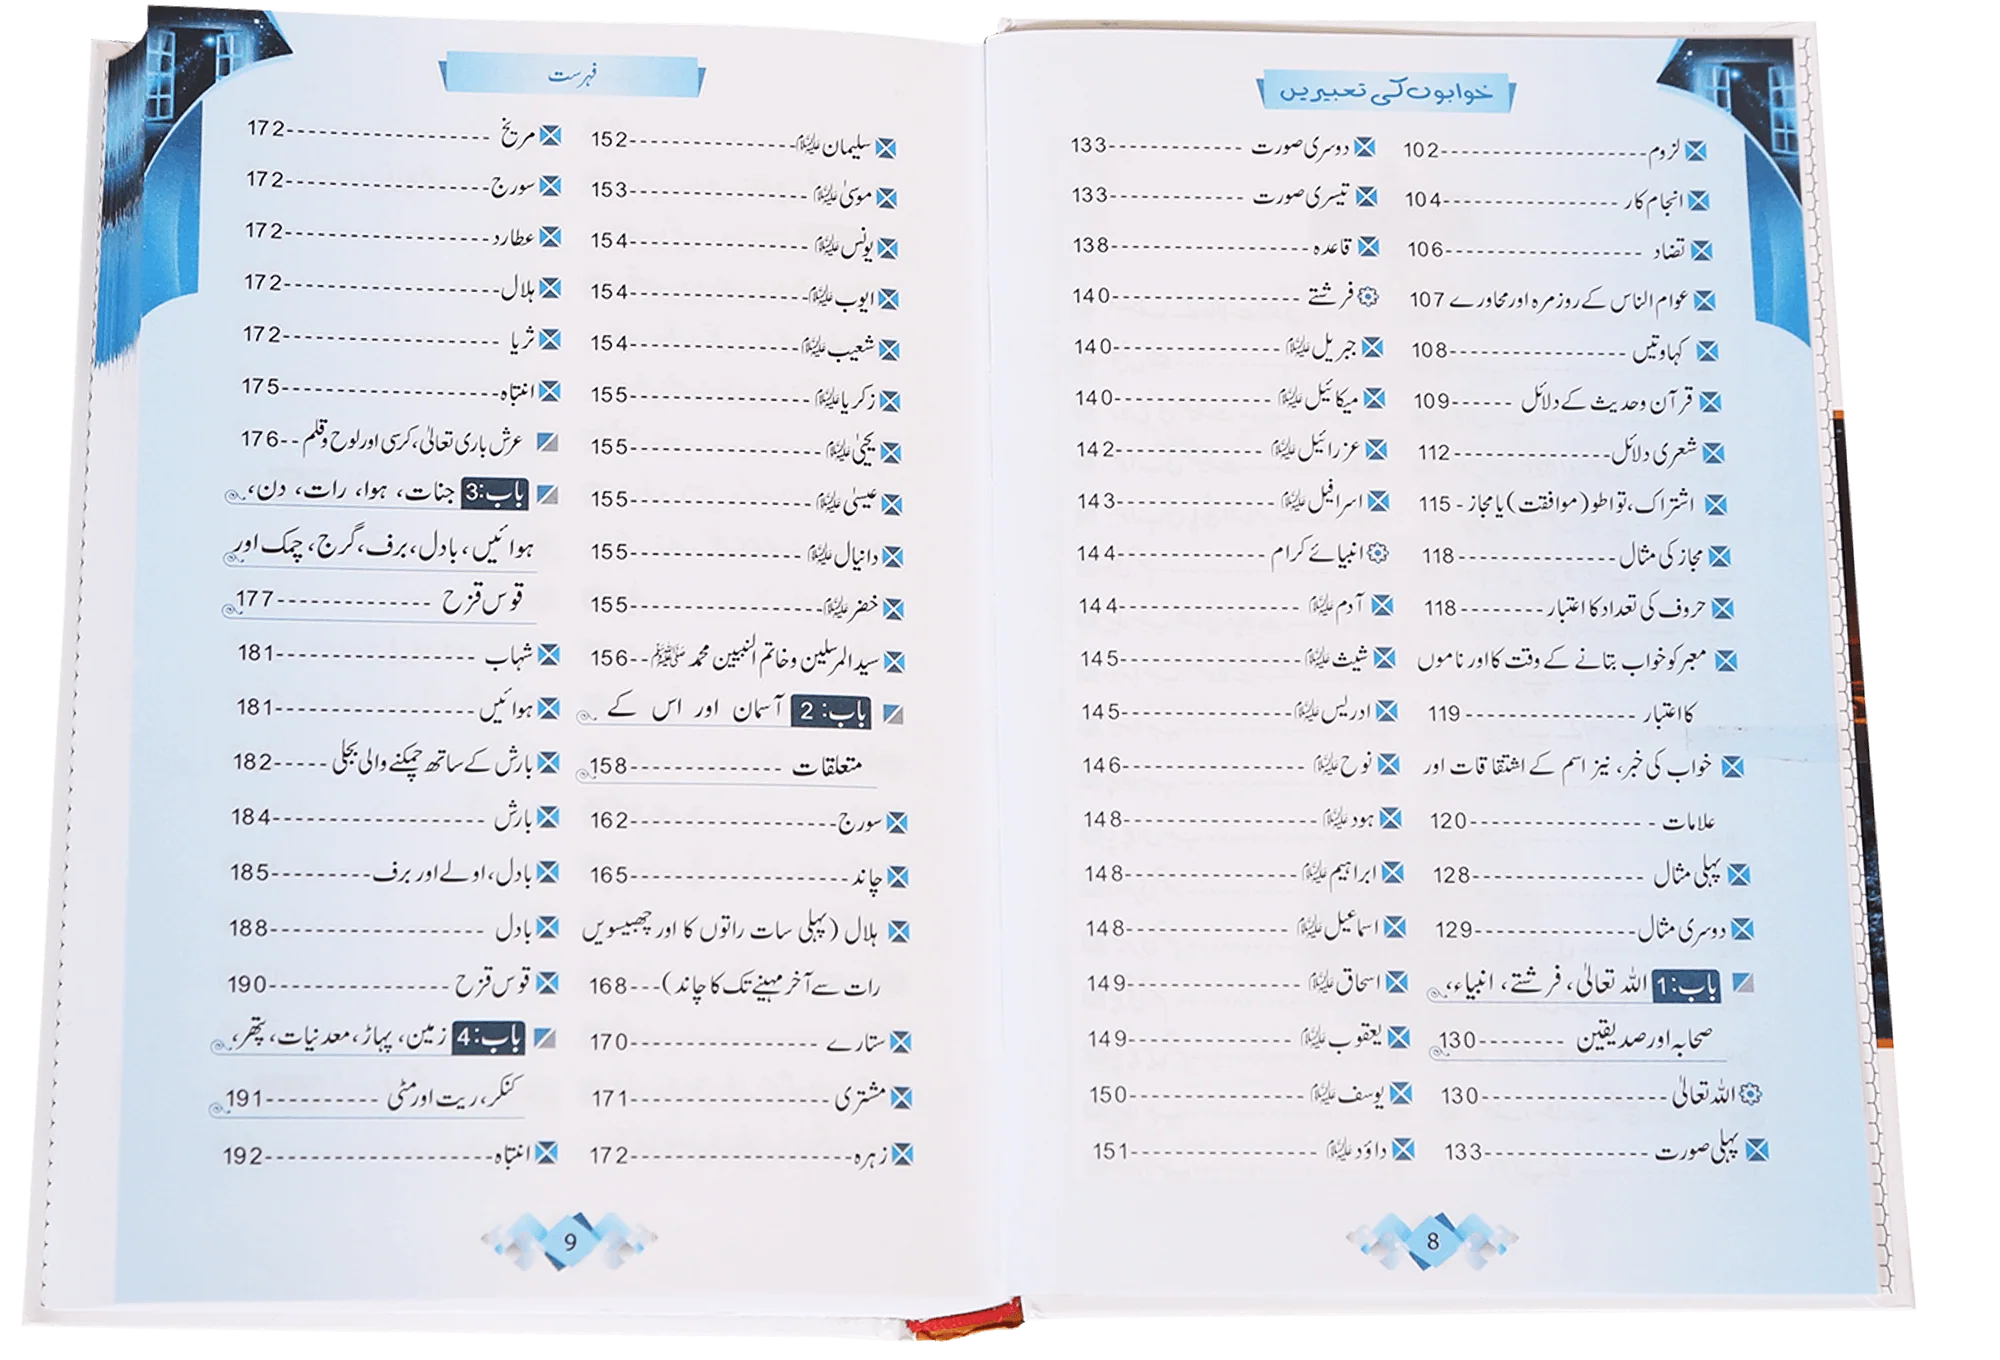 خوابوں کی تعبیریں
لزوم 102
انجام کار 104
تضاد 106
عوام الناس کے روزمرہ اور محاورے 107
کہاوتیں 108
قرآن وحدیث کے دلائل 109
شعری دلائل 112
اشتراک، تواطو (موافقت) یا مجاز - 115
مجاز کی مثال 118
حروف کی تعداد کا اعتبار 118
معبر کو خواب بتانے کے وقت کا اور ناموں
کا اعتبار 119
خواب کی خبر، نیز اسم کے اشتقاقات اور
علامات 120
پہلی مثال 128
دوسری مثال 129
باب:1 اللہ تعالیٰ، فرشتے، انبیاء،
صحابہ اور صدیقین 130
اللہ تعالیٰ 130
پہلی صورت 133
دوسری صورت 133
تیسری صورت 133
قاعدہ 138
فرشتے 140
جبریل علیہ السلام 140
میکائیل علیہ السلام 140
عزرائیل علیہ السلام 142
اسرافیل علیہ السلام 143
انبیائے کرام 144
آدم علیہ السلام 144
شیث علیہ السلام 145
ادریس علیہ السلام 145
نوح علیہ السلام 146
ہود علیہ السلام 148
ابراہیم علیہ السلام 148
اسماعیل علیہ السلام 148
اسحاق علیہ السلام 149
یعقوب علیہ السلام 149
یوسف علیہ السلام 150
داؤد علیہ السلام 151
8
فہرست
سلیمان علیہ السلام 152
موسیٰ علیہ السلام 153
یونس علیہ السلام 154
ایوب علیہ السلام 154
شعیب علیہ السلام 154
زکریا علیہ السلام 155
یحییٰ علیہ السلام 155
عیسیٰ علیہ السلام 155
دانیال علیہ السلام 155
خضر علیہ السلام 155
سید المرسلین وخاتم النبیین محمد ﷺ -- 156
باب: 2 آسمان اور اس کے
متعلقات 158
سورج 162
چاند 165
ہلال (پہلی سات راتوں کا اور چھبیسویں
رات سے آخر مہینے تک کا چاند) --- 168
ستارے 170
مشتری 171
زہرہ 172
مریخ 172
سورج 172
عطارد 172
ہلال 172
ثریا 172
انتباہ 175
عرش باری تعالیٰ، کرسی اور لوح وقلم -- 176
باب:3 جنات، ہوا، رات، دن،
ہوائیں، بادل، برف، گرج، چمک اور
قوس قزح 177
شہاب 181
ہوائیں 181
بارش کے ساتھ چمکنے والی بجلی 182
بارش 184
بادل، اولے اور برف 185
بادل 188
قوس قزح 190
باب:4 زمین، پہاڑ، معدنیات، پتھر،
کنکر، ریت اور مٹی 191
انتباہ 192
9